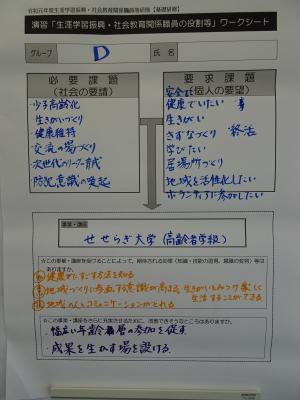 令和元年度生涯学習振興・社会教育関係職員等研修【基礎研修】
演習「生涯学習振興・社会教育関係職員の役割等」ワークシート
グループ D 氏名
必要課題
(社会の要請)
・少子高齢化
・生きがいづくり
・健康維持
・交流の場づくり
・次世代のリーダー育成
・防犯意識の喚起
要求課題
(個人の要望)
安全
健康でいたい
生きがい
きずなづくり 終活
学びたい
居場所づくり
地域を活性化したい
ボランティアに参加したい
事業・講座
せせらぎ大学(高齢者学級)
☆この事業・講座を受けることによって、期待される効果(知識・技能の習得、意識の変容)等は
ありますか。
健康で す方法を知る
地域づくりに参画する意識が高まる。生きがいをみつけ楽しく
生活することができる
地域の人とコミュニケーションがとれる
☆この事業・講座をさらに充実させるために、改善できそうなところはありますか。
・幅広い年齢層の参加を促す
・成果を生かす場を設ける。